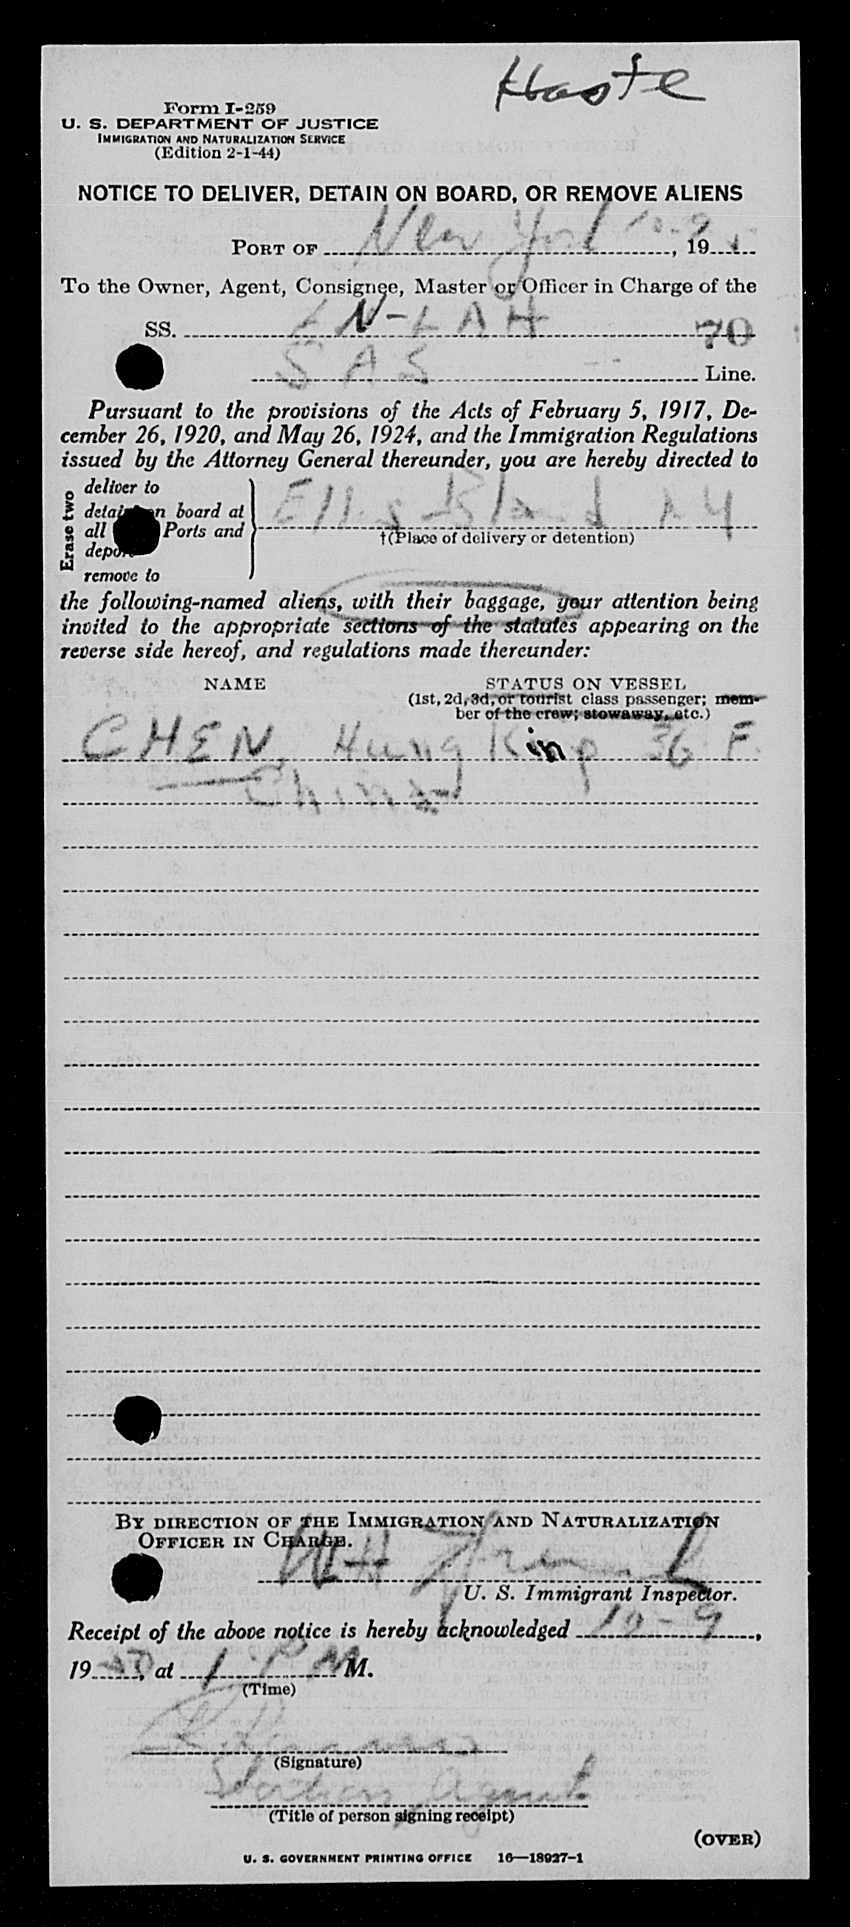 Haste
Form I-259
U. S. DEPARTMENT OF JUSTICE
IMMIGRATION AND NATURALIZATION SERVICE
(Edition 2-1-44)
NOTICE TO DELIVER, DETAIN ON BOARD, OR REMOVE ALIENS
PORT OF New York 10-9, 19
To the Owner, Agent, Consignee, Master or Officer in Charge of the
SS. LN-LAH 70
SAS Line.
Pursuant to the provisions of the Acts of February 5, 1917, De-
cember 26, 1920, and May 26, 1924, and the Immigration Regulations
issued by the Attorney General thereunder, you are hereby directed to
Erase two
deliver to
detain on board at
all Ports and
deport
remove to
Ellis Island NY
†(Place of delivery or detention)
the following-named aliens, with their baggage, your attention being
invited to the appropriate sections of the statutes appearing on the
reverse side hereof, and regulations made thereunder:
NAME STATUS ON VESSEL
(1st, 2d, 3d, or tourist class passenger; mem-
ber of the crew; stowaway, etc.)
CHEN, Hung King 36 F.
China
BY DIRECTION OF THE IMMIGRATION AND NATURALIZATION
OFFICER IN CHARGE.
WH
U. S. Immigrant Inspector.
Receipt of the above notice is hereby acknowledged 10-9,
19 50, at 1 PM M.
(Time)
(Signature)
Station Agent
(Title of person signing receipt)
(OVER)
U. S. GOVERNMENT PRINTING OFFICE 16—18927-1